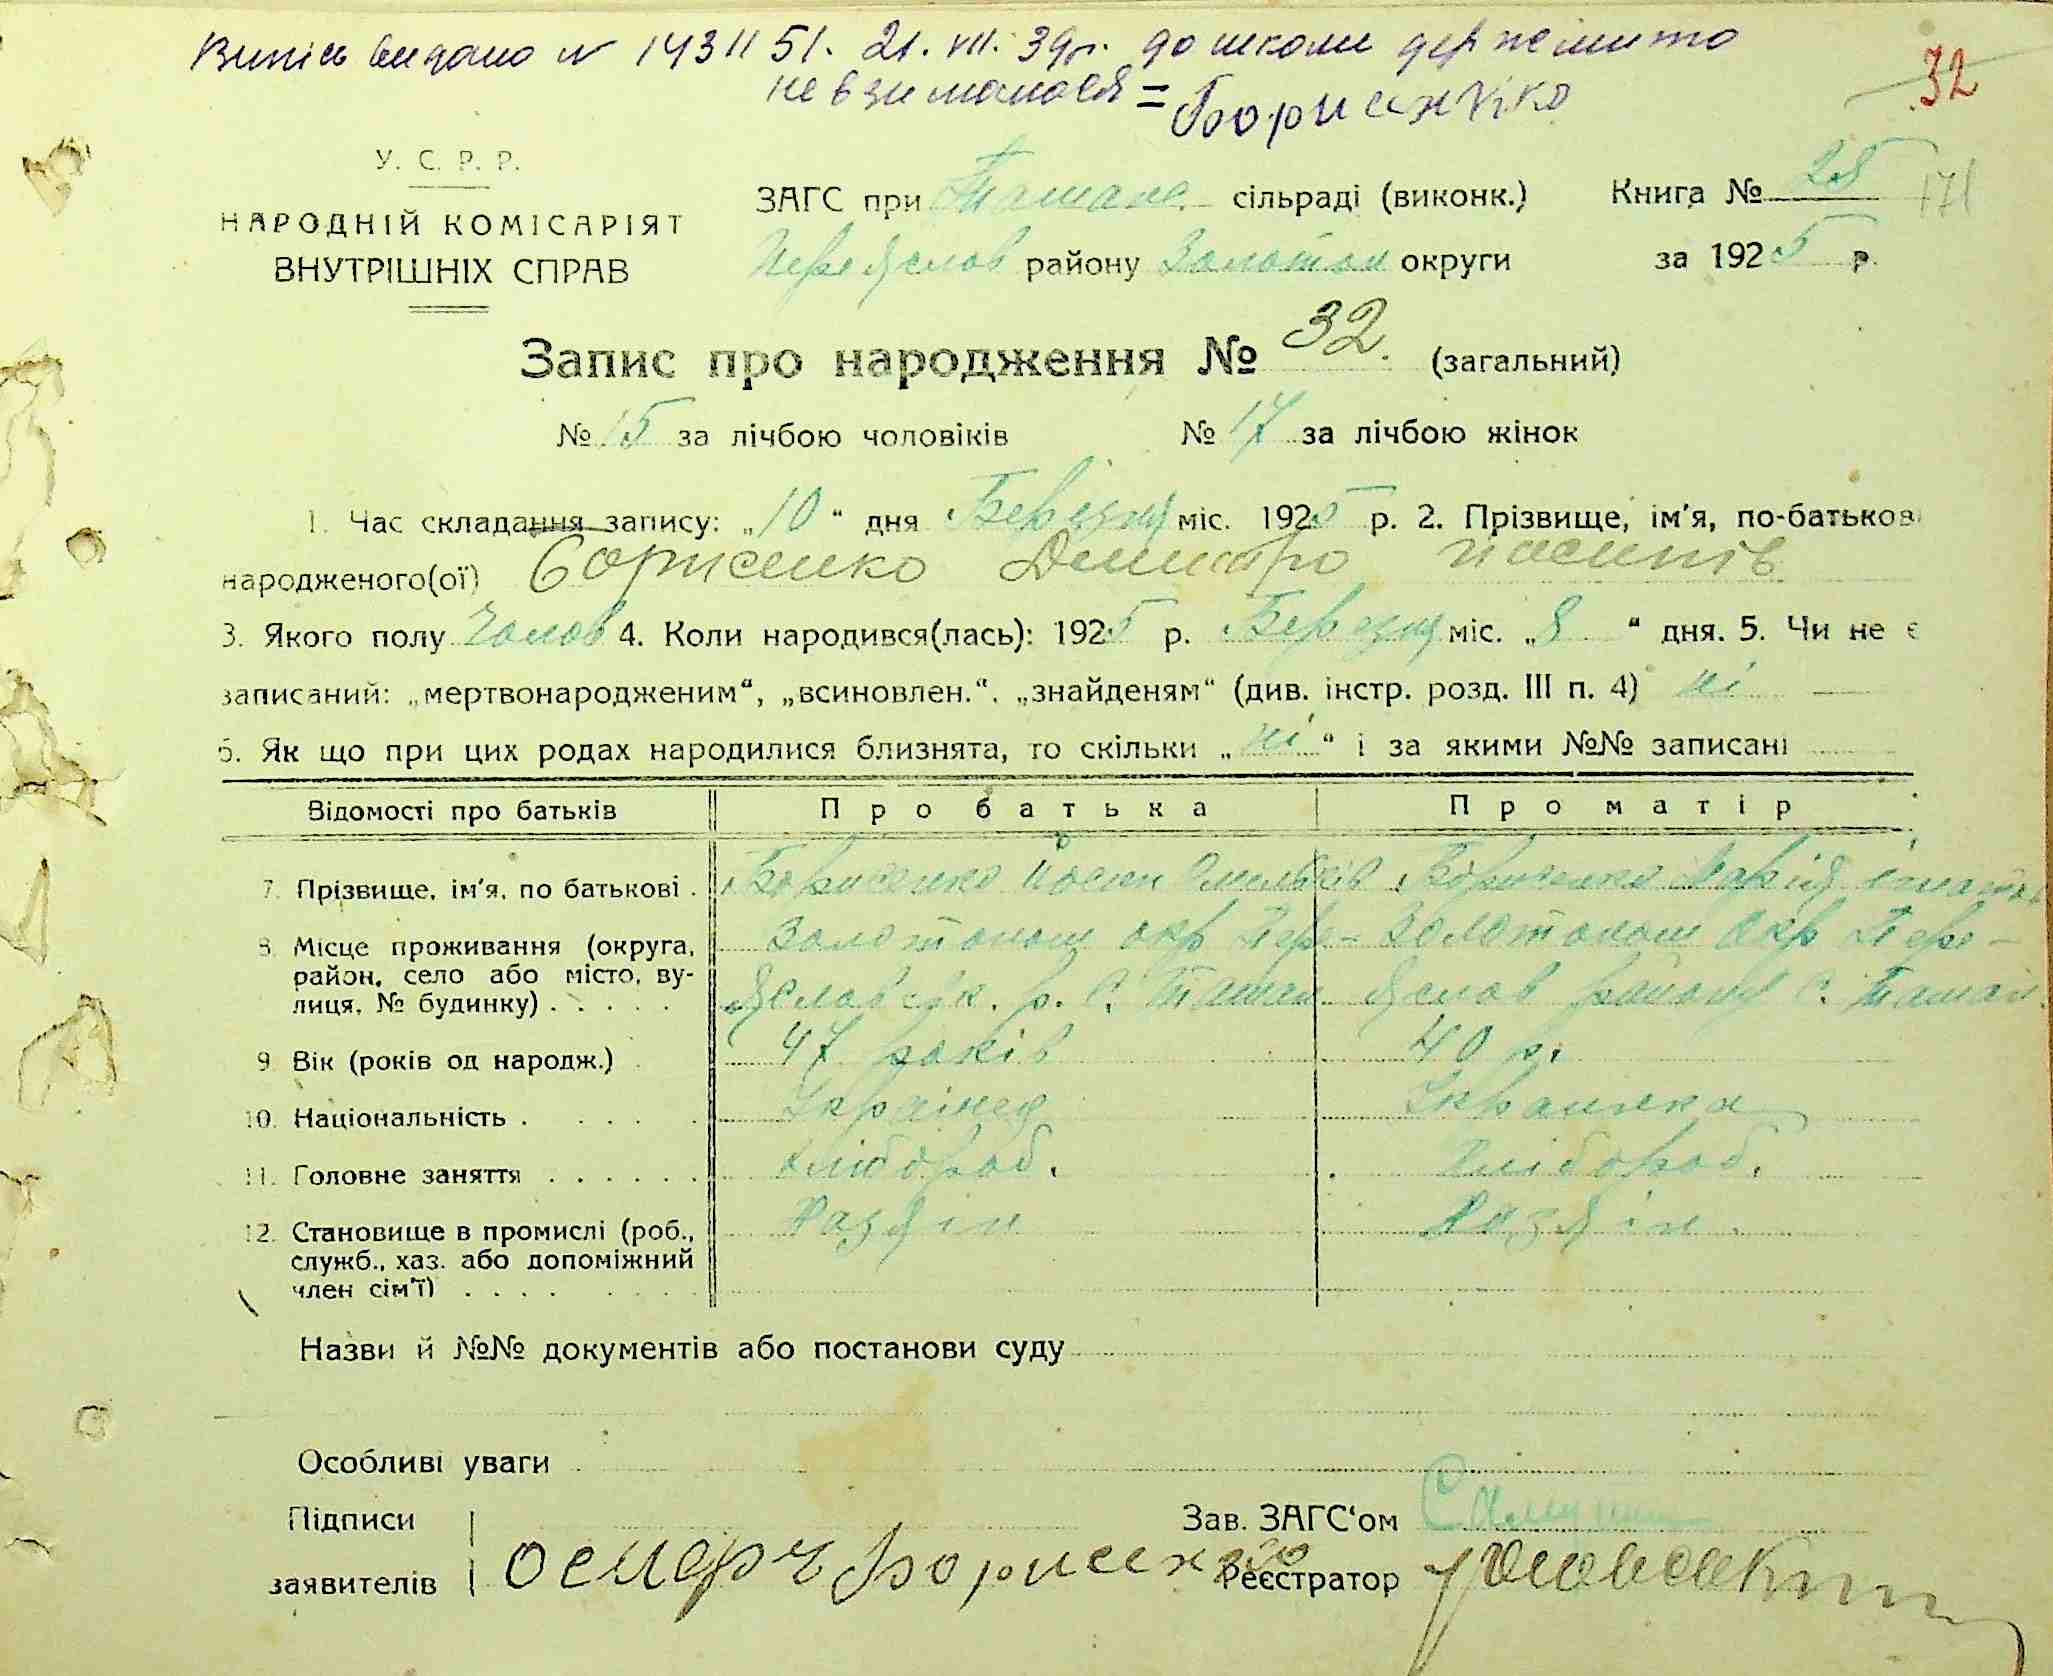 Випісь видано № 143 // 51. 21. VII. 39 р. до школи держмито
не взималося = Борисенко
32
У. С. Р. Р.
НАРОДНІЙ КОМІСАРІЯТ
ВНУТРІШНІХ СПРАВ
ЗАГС при Ташане. сільраді (виконк.) Книга № 28 171
Переяслов району Золотон округи за 1925 р.
Запис про народження № 32. (загальний)
№ 15 за лічбою чоловіків № 17 за лічбою жінок
1. Час складання запису: „10“ дня Березня міс. 1925 р. 2. Прізвище, ім'я, по-батькові
народженого(ої) Борисенко Дмитро Йосипів
3. Якого полу Чолов 4. Коли народився(лась): 1925 р. Березня міс. „8“ дня. 5. Чи не є
записаний: „мертвонародженим“, „всиновлен.“, „знайденям“ (див. інстр. розд. III п. 4) ні
6. Як що при цих родах народилися близнята, то скільки „ні“ і за якими №№ записані
Відомості про батьків Про батька Про матір
7. Прізвище, ім'я, по батькові . Борисенко Йосип Омельків Борисенко Марія
8. Місце проживання (округа, Золотонош окр Пере- Золотонош Окр Пере-
район, село або місто, ву- яславськ. р. С. Ташан яслов району С. Ташан.
лиця, № будинку) . . . . .
9 Вік (років од народж.) 47 років 40 р.
10. Національність . . . . . Українец Українка
11. Головне заняття . . . . . . Хлібороб. Хлібороб.
12. Становище в промислі (роб., Хазяін Хазяін.
служб., хаз. або допоміжний
член сім'ї) . . . . . . . .
Назви й №№ документів або постанови суду
Особливі уваги
Підписи Зав. ЗАГС‘ом
заявителів Борисенко Реєстратор